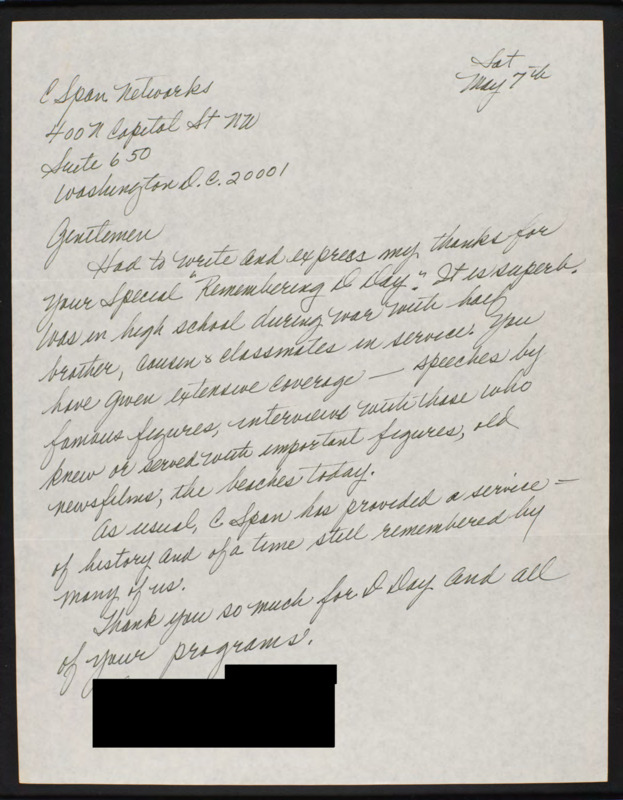 Sat
May 7th
C Span Networks
400 N Capitol St NW
Suite 650
Washington D.C. 20001
Gentlemen
Had to write and express my thanks for
your Special "Remembering D Day." It is superb.
Was in high school during war with half
brother, cousin & classmates in service. You
have given extensive coverage — speeches by
famous figures, interviews with those who
knew or served with important figures, old
newsfilms, the beaches today.
As usual, C Span has provided a service —
of history and of a time still remembered by
many of us.
Thank you so much for D Day and all
of your programs.